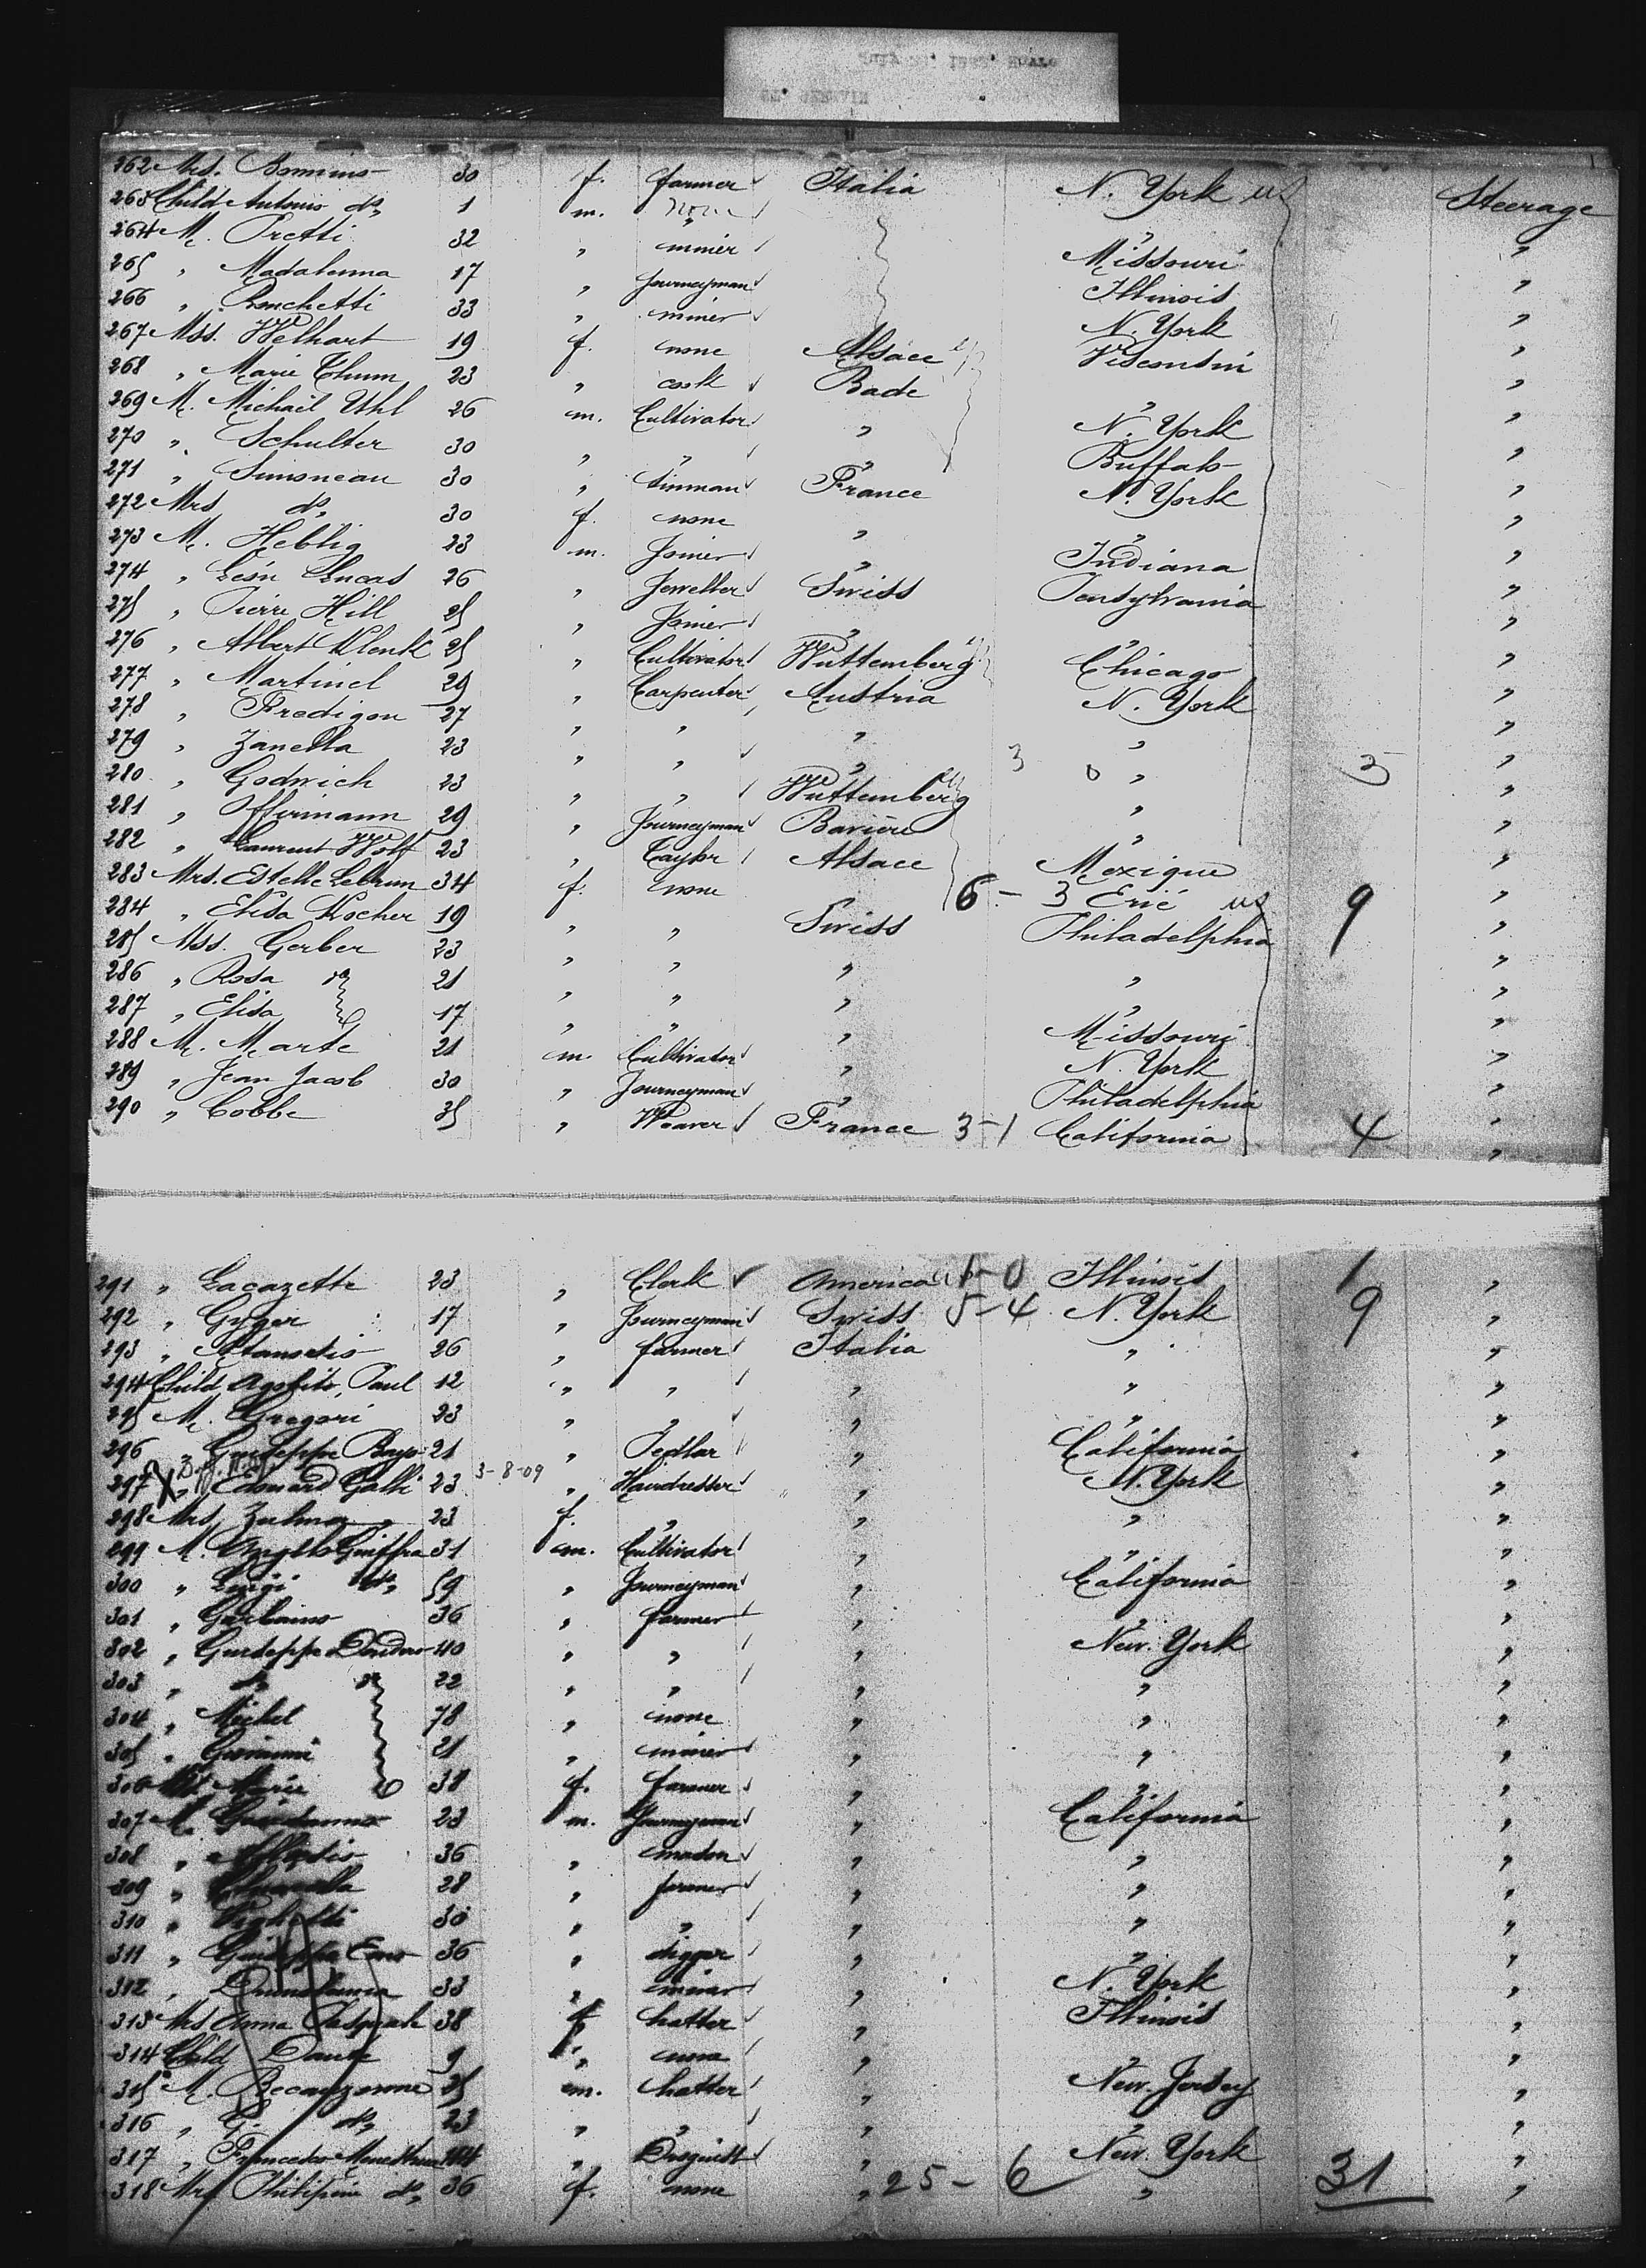 262 Mrs. Bonnino 30 f. farmer Italia N. York US Steerage
263 Child Antonio do 1 m. none " " "
264 M. Pretti 32 " miner Missouri "
265 " Madalenna 17 " Journeyman Illinois "
266 " Ronchetti 33 " miner N. York "
267 Mss. Welhart 19 f. none Alsace Visconsin "
268 " Marie Thum 23 " cook Bade " "
269 M. Michail Uhl 26 m. Cultivator " N. York "
270 " Schulter 30 " " " Buffalo "
271 " Simoneau 30 " tinman France N. York "
272 Mrs do 30 f. none " " "
273 M. Heblig 23 m. Joiner " Indiana "
274 " Léon Lucas 26 " Jeweller Swiss Pensylvania "
275 " Pierre Hill 25 " Joiner " " "
276 " Albert Klenk 25 " Cultivator Wuttemberg Chicago "
277 " Martinel 29 " Carpenter Austria N. York "
278 " Fredigon 27 " " " " "
279 " Zanella 23 " " " 3 0 " 3 "
280 " Godwich 23 " " Wuttemberg " "
281 " Offirmann 29 " Journeyman Baviere " "
282 " Laurent Wolf 23 " Taylor Alsace Mexique "
283 Mrs. Estelle Lebrun 34 f. none 6 - 3 Erié US 9 "
284 " Elisa Kocher 19 " " Swiss Philadelphia "
285 Mss. Gerber 23 " " " " "
286 " Rosa do 21 " " " " "
287 " Elisa 17 " " " Missouri "
288 M. Marte 21 m. Cultivator " N. York "
289 " Jean Jacob 30 " Journeyman " Philadelphia "
290 " Cobbe 35 " Weaver France 3-1 California 4 "
291 " Lacazette 23 " Clerk America 1-0 Illinois 1 "
292 " Gyger 17 " Journeyman Swiss 5-4 N. York 9 "
293 " 26 " farmer Italia " "
294 Child Agostito, Paul 12 " " " " "
295 M. Gregori 23 " " " " "
296 " Guiseppe 21 " Pedlar " California "
297 X " Edouard Galli 23 3-8-09 " Hairdresser " N. York "
298 Mrs Zulma " 23 f. " " " "
299 M. Angello Guiffra 31 m. Cultivator " " "
300 " Luigi do 59 " Journeyman " California "
301 " Garbaino 36 " farmer " " "
302 " Guiseppe 40 " " " New. York "
303 " do do 22 " " " " "
304 " Michel 78 " none " " "
305 " Giovanni 21 " miner " " "
306 Marie 38 f. farmer " " "
307 M. 23 m. Journeyman " California "
308 " 36 " mason " " "
309 " 28 " farmer " " "
310 " 30 " " " " "
311 " Guiseppe 36 " digger " " "
312 " 33 " miner " N. York "
313 Mrs Anna Pasquale 38 f. hatter " Illinois "
314 Child 9 " none " " "
315 M. 35 m. hatter " New. Jersey "
316 " G. do 23 " " " " "
317 " Francesco 44 " " New. York "
318 Mrs Philipine do 36 f. none " 25 - 6 " 31 "